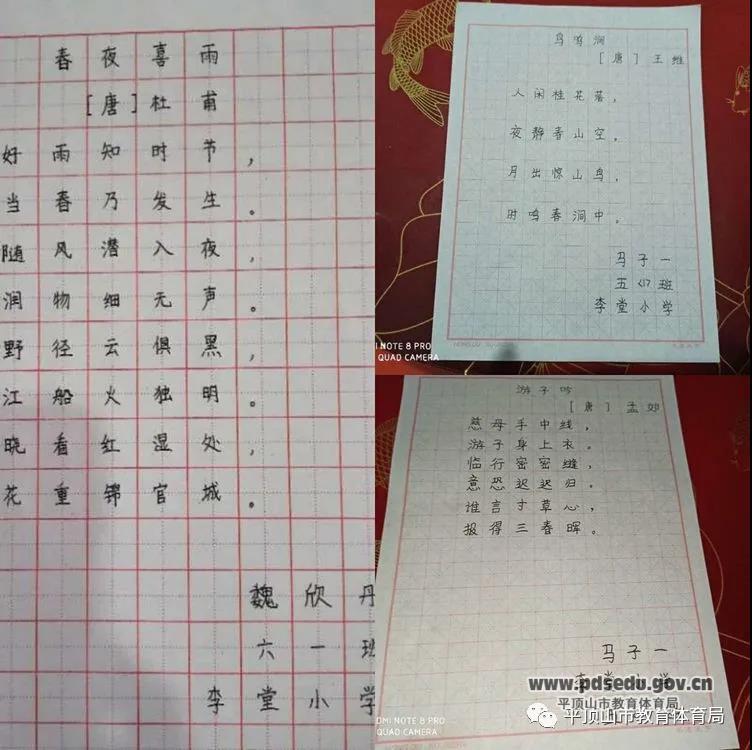 春夜喜雨
[唐]杜甫
好雨知时节，
当春乃发生。
随风潜入夜，
润物细无声。
野径云俱黑，
江船火独明。
晓看红湿处，
花重锦官城。
魏欣丹
六一班
李堂小学
鸟鸣涧
[唐]王维
人闲桂花落，
夜静春山空。
月出惊山鸟，
时鸣春涧中。
马子一
五(1)班
李堂小学
MI NOTE 8 PRO
QUAD CAMERA
游子吟
[唐]孟
慈母手中线，
游子身上衣。
临行密密缝，
意恐迟迟归。
谁言寸草心，
报得三春晖。
马子一
李堂 学
www.pdsedu.gov.cn
平顶山市教育体育局
平顶山市教育体育局
REDMI NOTE 8 PRO
QUAD CAMERA